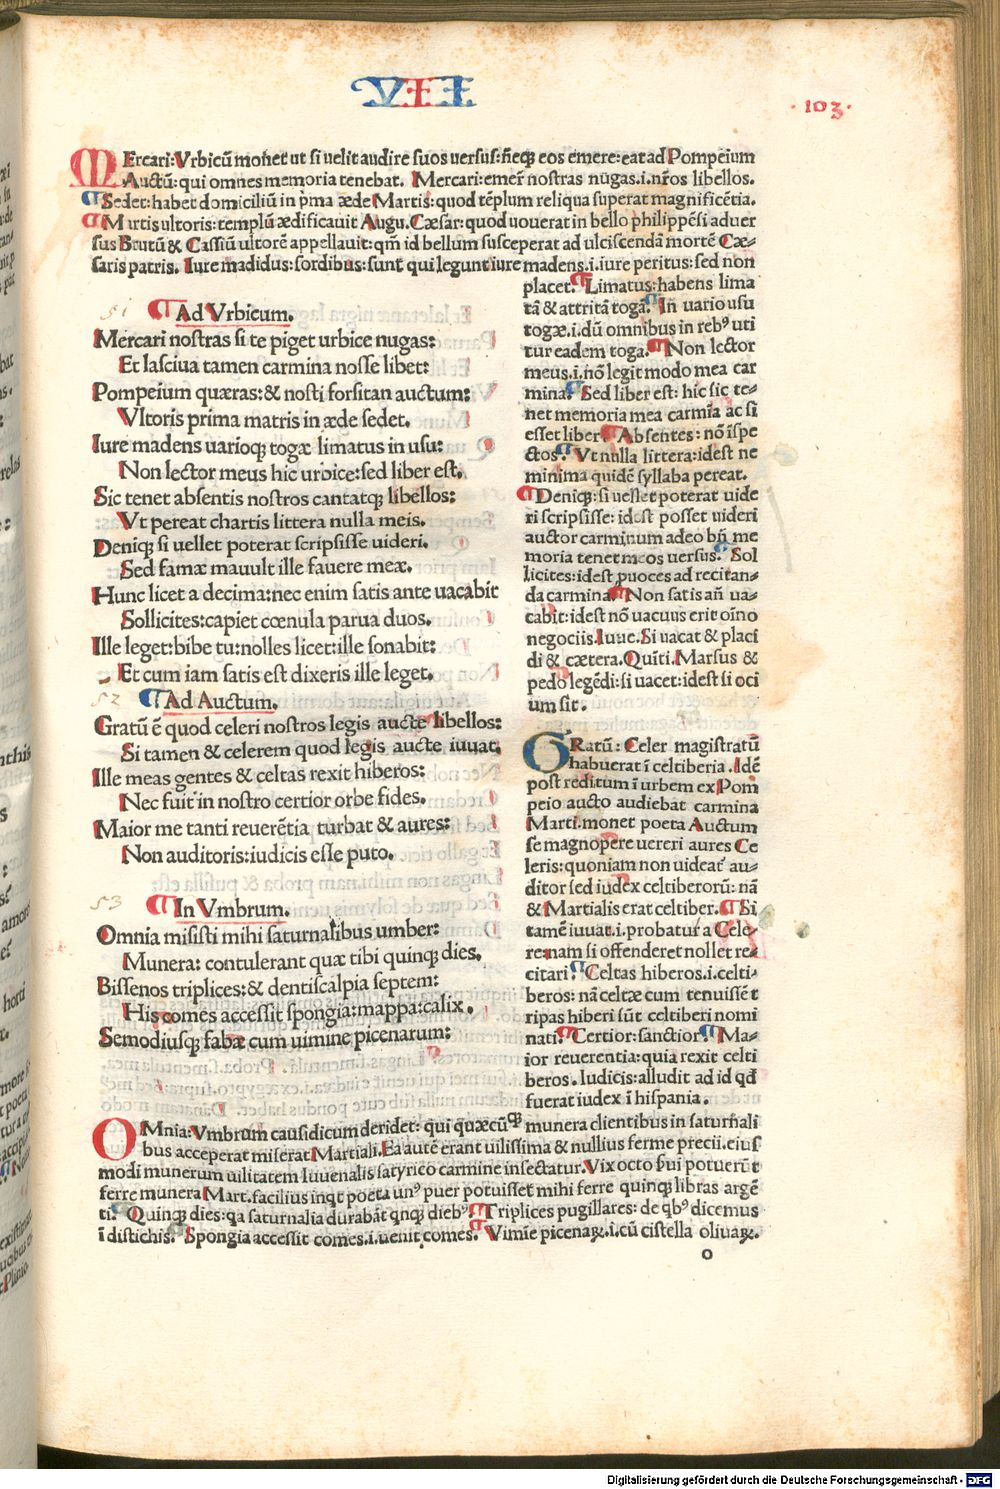 VII
·103·
MErcari:Vrbicū monet ut si uelit audire suos uersus:neqꝫ eos emere:eat ad Pompeium
Auctū:qui omnes memoria tenebat. Mercari:emer̃ nostras nugas.i.nr̃os libellos.
¶Sedet:habet domiciliū in p̄ma æde Martis:quod tēplum reliqua superat magnificētia.
¶Martis ultoris:templū ædificauit Augu.Cæsar:quod uouerat in bello philippēsi aduer
sus Brutū & Cassiū ultorē appellauit:qm̄ id bellum susceperat ad ulciscendā mortē Cæ-
saris patris. Iure madidus:sordibus:sunt qui legunt iure madens.i.iure peritus:sed non
placet.¶Limatus:habens lima
tā & attritā togā.¶In uario usu
togæ.i.dū omnibus in reb⁹ uti
tur eadem toga.¶Non lector
meus.i.nō legit modo mea car
mina.¶Sed liber est: hic sic te-
net memoria mea carmīa ac si
esset liber.¶Absentes:nō īspe
ctos.¶Vt nulla littera:idest ne
minima quidē syllaba pereat.
¶Deniqꝫ:si uellet poterat uide
ri scripsisse:idest posset uideri
auctor carminum adeo bn̄ me
moria tenet meos uersus.¶Sol
licites:idest ꝓuoces ad recitan-
da carmina.¶Non satis añ ua-
cabit:idest nō uacuus erit oīno
negociis.Iuue.Si uacat & placi
di & cætera.Quīti.Marsus &
pedo legēdi:si uacet:idest si oci
um sit.
51 ¶Ad Vrbicum.
Mercari nostras si te piget urbice nugas:
Et lasciua tamen carmina nosse libet:
Pompeium quæras:& nosti forsitan auctum:
Vltoris prima matris in æde sedet.
Iure madens uarioqꝫ togæ limatus in usu:
Non lector meus hic urbice:sed liber est.
Sic tenet absentis nostros cantatqꝫ libellos:
Vt pereat chartis littera nulla meis.
Deniqꝫ si uellet poterat scripsisse uideri.
Sed famæ mauult ille fauere meæ.
Hunc licet a decima:nec enim satis ante uacabit
Sollicites:capiet cœnula parua duos.
Ille leget:bibe tu:nolles licet:ille sonabit:
Et cum iam satis est dixeris ille leget.
52 ¶Ad Auctum.
Gratū ē quod celeri nostros legis aucte libellos:
Si tamen & celerem quod legis aucte iuuat.
Ille meas gentes & celtas rexit hiberos:
Nec fuit in nostro certior orbe fides.
Maior me tanti reuerētia turbat & aures:
Non auditoris:iudicis esse puto.
GRatū: Celer magistratū
habuerat ī celtiberia.Idē
post reditum ī urbem ex Pom
peio aucto audiebat carmina
Marti.monet poeta Auctum
se magnopere uereri aures Ce
leris:quoniam non uideat̄ au-
ditor sed iudex celtiberorū:nā
& Martialis erat celtiber.¶Si
tamē iuuat.i.probatur a Cele-
re:nam si offenderet nollet re-
citari.¶Celtas hiberos.i.celti-
beros: nā celtæ cum tenuissēt
ripas hiberi sūt celtiberi nomi
nati.¶Certior:sanctior.¶Ma-
ior reuerentia:quia rexit celti
beros.Iudicis:alludit ad id qđ
fuerat iudex ī hispania.
53 ¶In Vmbrum.
Omnia misisti mihi saturnalibus umber:
Munera: contulerant quæ tibi quinqꝫ dies.
Bissenos triplices:& dentiscalpia septem:
His comes accessit spongia:mappa:calix.
Semodiusqꝫ fabæ cum uimine picenarum:
OMnia:Vmbrum causidicum deridet: qui quæcūqꝫ munera clientibus in saturnali
bus acceperat miserat Martiali.Ea autē erant uilissima & nullius ferme precii.eius
modi munerum uilitatem Iuuenalis satyrico carmine insectatur.Vix octo s̄ui potuer̄t
ferre munera Mart.facilius inq̄t poeta un⁹ puer potuisset mihi ferre quinqꝫ libras argē
ti.¶Quinqꝫ dies:qa saturnalia durabāt qnqꝫ dieb⁹.¶Triplices pugillares: de qb⁹ dicemus
ī distichis.¶Spongia accessit comes.i.uenit comes.¶Vimīe picenaꝝ.i.cū cistella oliuaꝝ.
o
Digitalisierung gefördert durch die Deutsche Forschungsgemeinschaft - DFG